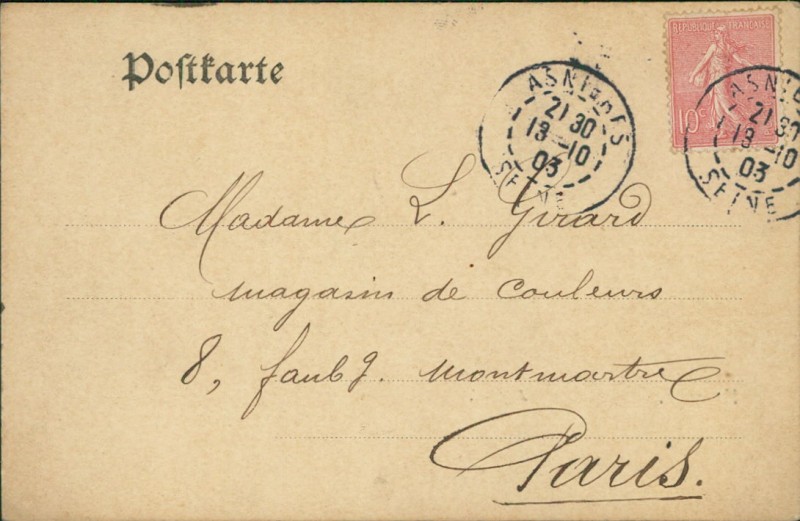 Postkarte
REPUBLIQUE FRANÇAISE
10c
ASNIERES
21 30
13-10
03
SEINE
ASNI
21 30
13-10
03
SEINE
Madame L. Girard
magasin de couleurs
8, faubg. Montmartre
Paris.